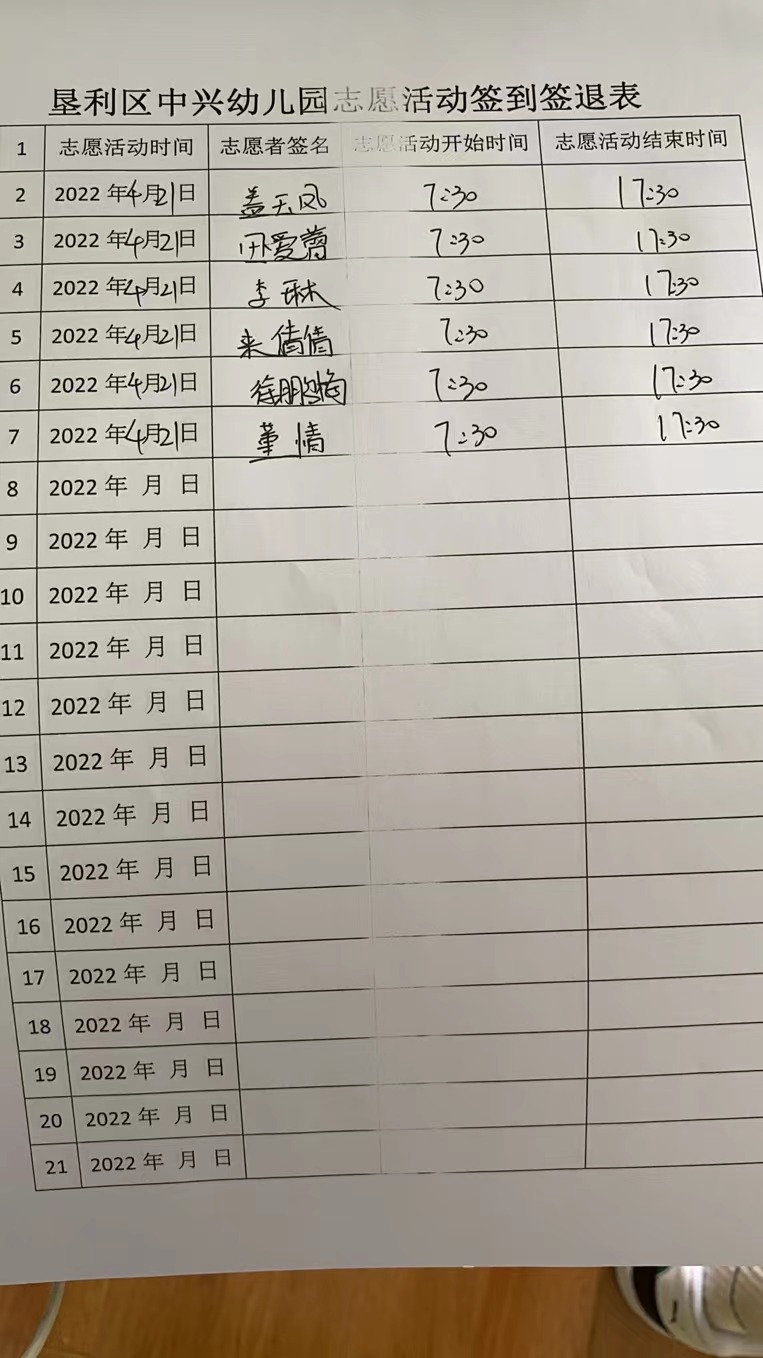 垦利区中兴幼儿园志愿活动签到签退表
1 志愿活动时间 志愿者签名 志愿活动开始时间 志愿活动结束时间
2 2022年4月21日 盖天凤 7:30 17:30
3 2022年4月21日 7:30 17:30
4 2022年4月21日 李琳 7:30 17:30
5 2022年4月21日 来倩倩 7:30 17:30
6 2022年4月21日 7:30 17:30
7 2022年4月21日 董情 7:30 17:30
8 2022年 月 日
9 2022年 月 日
10 2022年 月 日
11 2022年 月 日
12 2022年 月 日
13 2022年 月 日
14 2022年 月 日
15 2022年 月 日
16 2022年 月 日
17 2022年 月 日
18 2022年 月 日
19 2022年 月 日
20 2022年 月 日
21 2022年 月 日